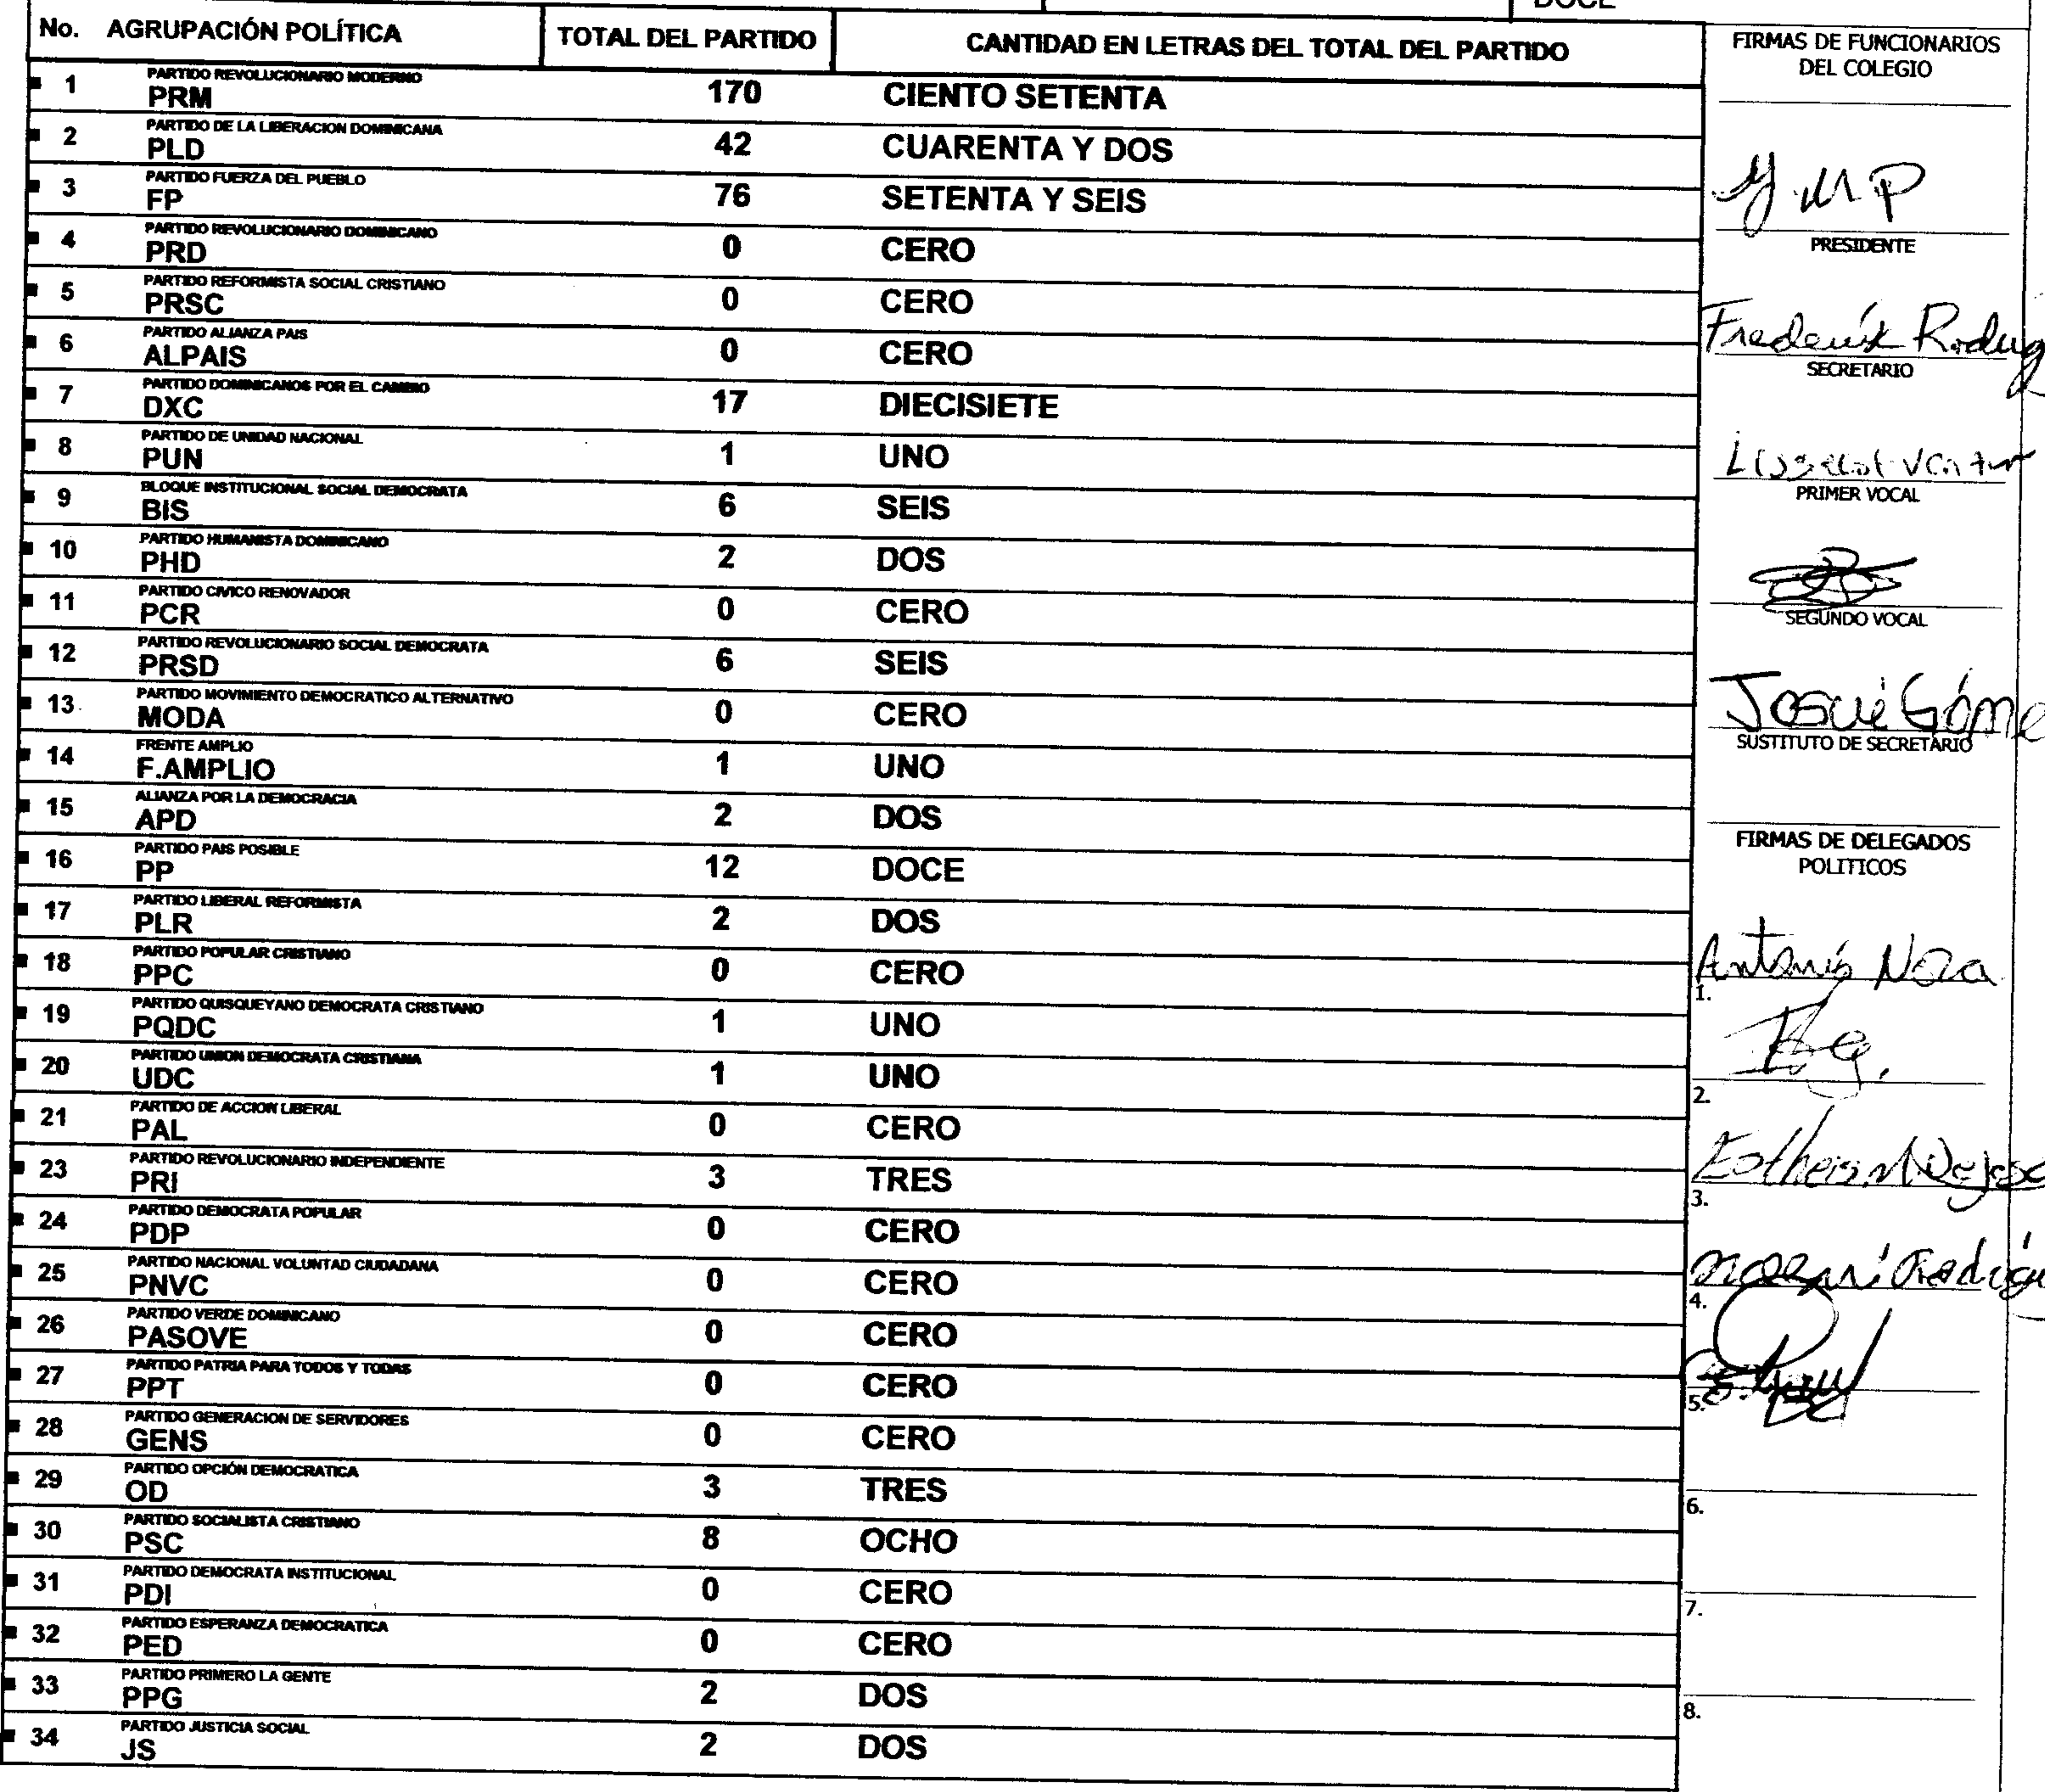 DOCE
No. AGRUPACIÓN POLÍTICA TOTAL DEL PARTIDO CANTIDAD EN LETRAS DEL TOTAL DEL PARTIDO
1 PARTIDO REVOLUCIONARIO MODERNO
PRM 170 CIENTO SETENTA
2 PARTIDO DE LA LIBERACION DOMINICANA
PLD 42 CUARENTA Y DOS
3 PARTIDO FUERZA DEL PUEBLO
FP 76 SETENTA Y SEIS
4 PARTIDO REVOLUCIONARIO DOMINICANO
PRD 0 CERO
5 PARTIDO REFORMISTA SOCIAL CRISTIANO
PRSC 0 CERO
6 PARTIDO ALIANZA PAIS
ALPAIS 0 CERO
7 PARTIDO DOMINICANOS POR EL CAMBIO
DXC 17 DIECISIETE
8 PARTIDO DE UNIDAD NACIONAL
PUN 1 UNO
9 BLOQUE INSTITUCIONAL SOCIAL DEMOCRATA
BIS 6 SEIS
10 PARTIDO HUMANISTA DOMINICANO
PHD 2 DOS
11 PARTIDO CIVICO RENOVADOR
PCR 0 CERO
12 PARTIDO REVOLUCIONARIO SOCIAL DEMOCRATA
PRSD 6 SEIS
13 PARTIDO MOVIMIENTO DEMOCRATICO ALTERNATIVO
MODA 0 CERO
14 FRENTE AMPLIO
F.AMPLIO 1 UNO
15 ALIANZA POR LA DEMOCRACIA
APD 2 DOS
16 PARTIDO PAIS POSIBLE
PP 12 DOCE
17 PARTIDO LIBERAL REFORMISTA
PLR 2 DOS
18 PARTIDO POPULAR CRISTIANO
PPC 0 CERO
19 PARTIDO QUISQUEYANO DEMOCRATA CRISTIANO
PQDC 1 UNO
20 PARTIDO UNION DEMOCRATA CRISTIANA
UDC 1 UNO
21 PARTIDO DE ACCION LIBERAL
PAL 0 CERO
23 PARTIDO REVOLUCIONARIO INDEPENDIENTE
PRI 3 TRES
24 PARTIDO DEMOCRATA POPULAR
PDP 0 CERO
25 PARTIDO NACIONAL VOLUNTAD CIUDADANA
PNVC 0 CERO
26 PARTIDO VERDE DOMINICANO
PASOVE 0 CERO
27 PARTIDO PATRIA PARA TODOS Y TODAS
PPT 0 CERO
28 PARTIDO GENERACION DE SERVIDORES
GENS 0 CERO
29 PARTIDO OPCIÓN DEMOCRATICA
OD 3 TRES
30 PARTIDO SOCIALISTA CRISTIANO
PSC 8 OCHO
31 PARTIDO DEMOCRATA INSTITUCIONAL
PDI 0 CERO
32 PARTIDO ESPERANZA DEMOCRATICA
PED 0 CERO
33 PARTIDO PRIMERO LA GENTE
PPG 2 DOS
34 PARTIDO JUSTICIA SOCIAL
JS 2 DOS
FIRMAS DE FUNCIONARIOS
DEL COLEGIO
PRESIDENTE
Frederik Rodrig
SECRETARIO
PRIMER VOCAL
SEGUNDO VOCAL
Josué Góme
SUSTITUTO DE SECRETARIO
FIRMAS DE DELEGADOS
POLITICOS
Antonio
1.
2.
3.
4.
5.
6.
7.
8.